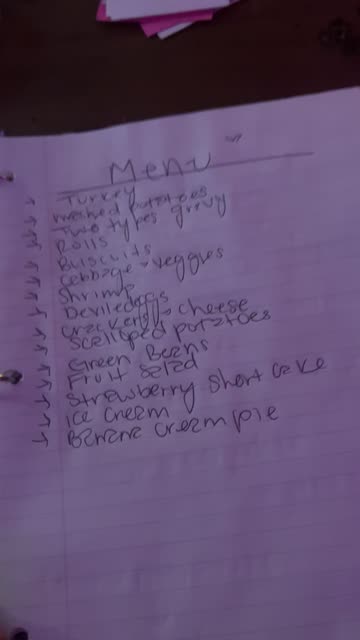 Menu
Turkey
mashed potatoes
Two types gravy
Rolls
Buiscuits
Cabbage + veggies
Shrimp
Deviled eggs
crackers + cheese
Scalloped potatoes
Green Beans
Fruit Salad
Strawberry short cake
Ice Cream
Banana cream pie